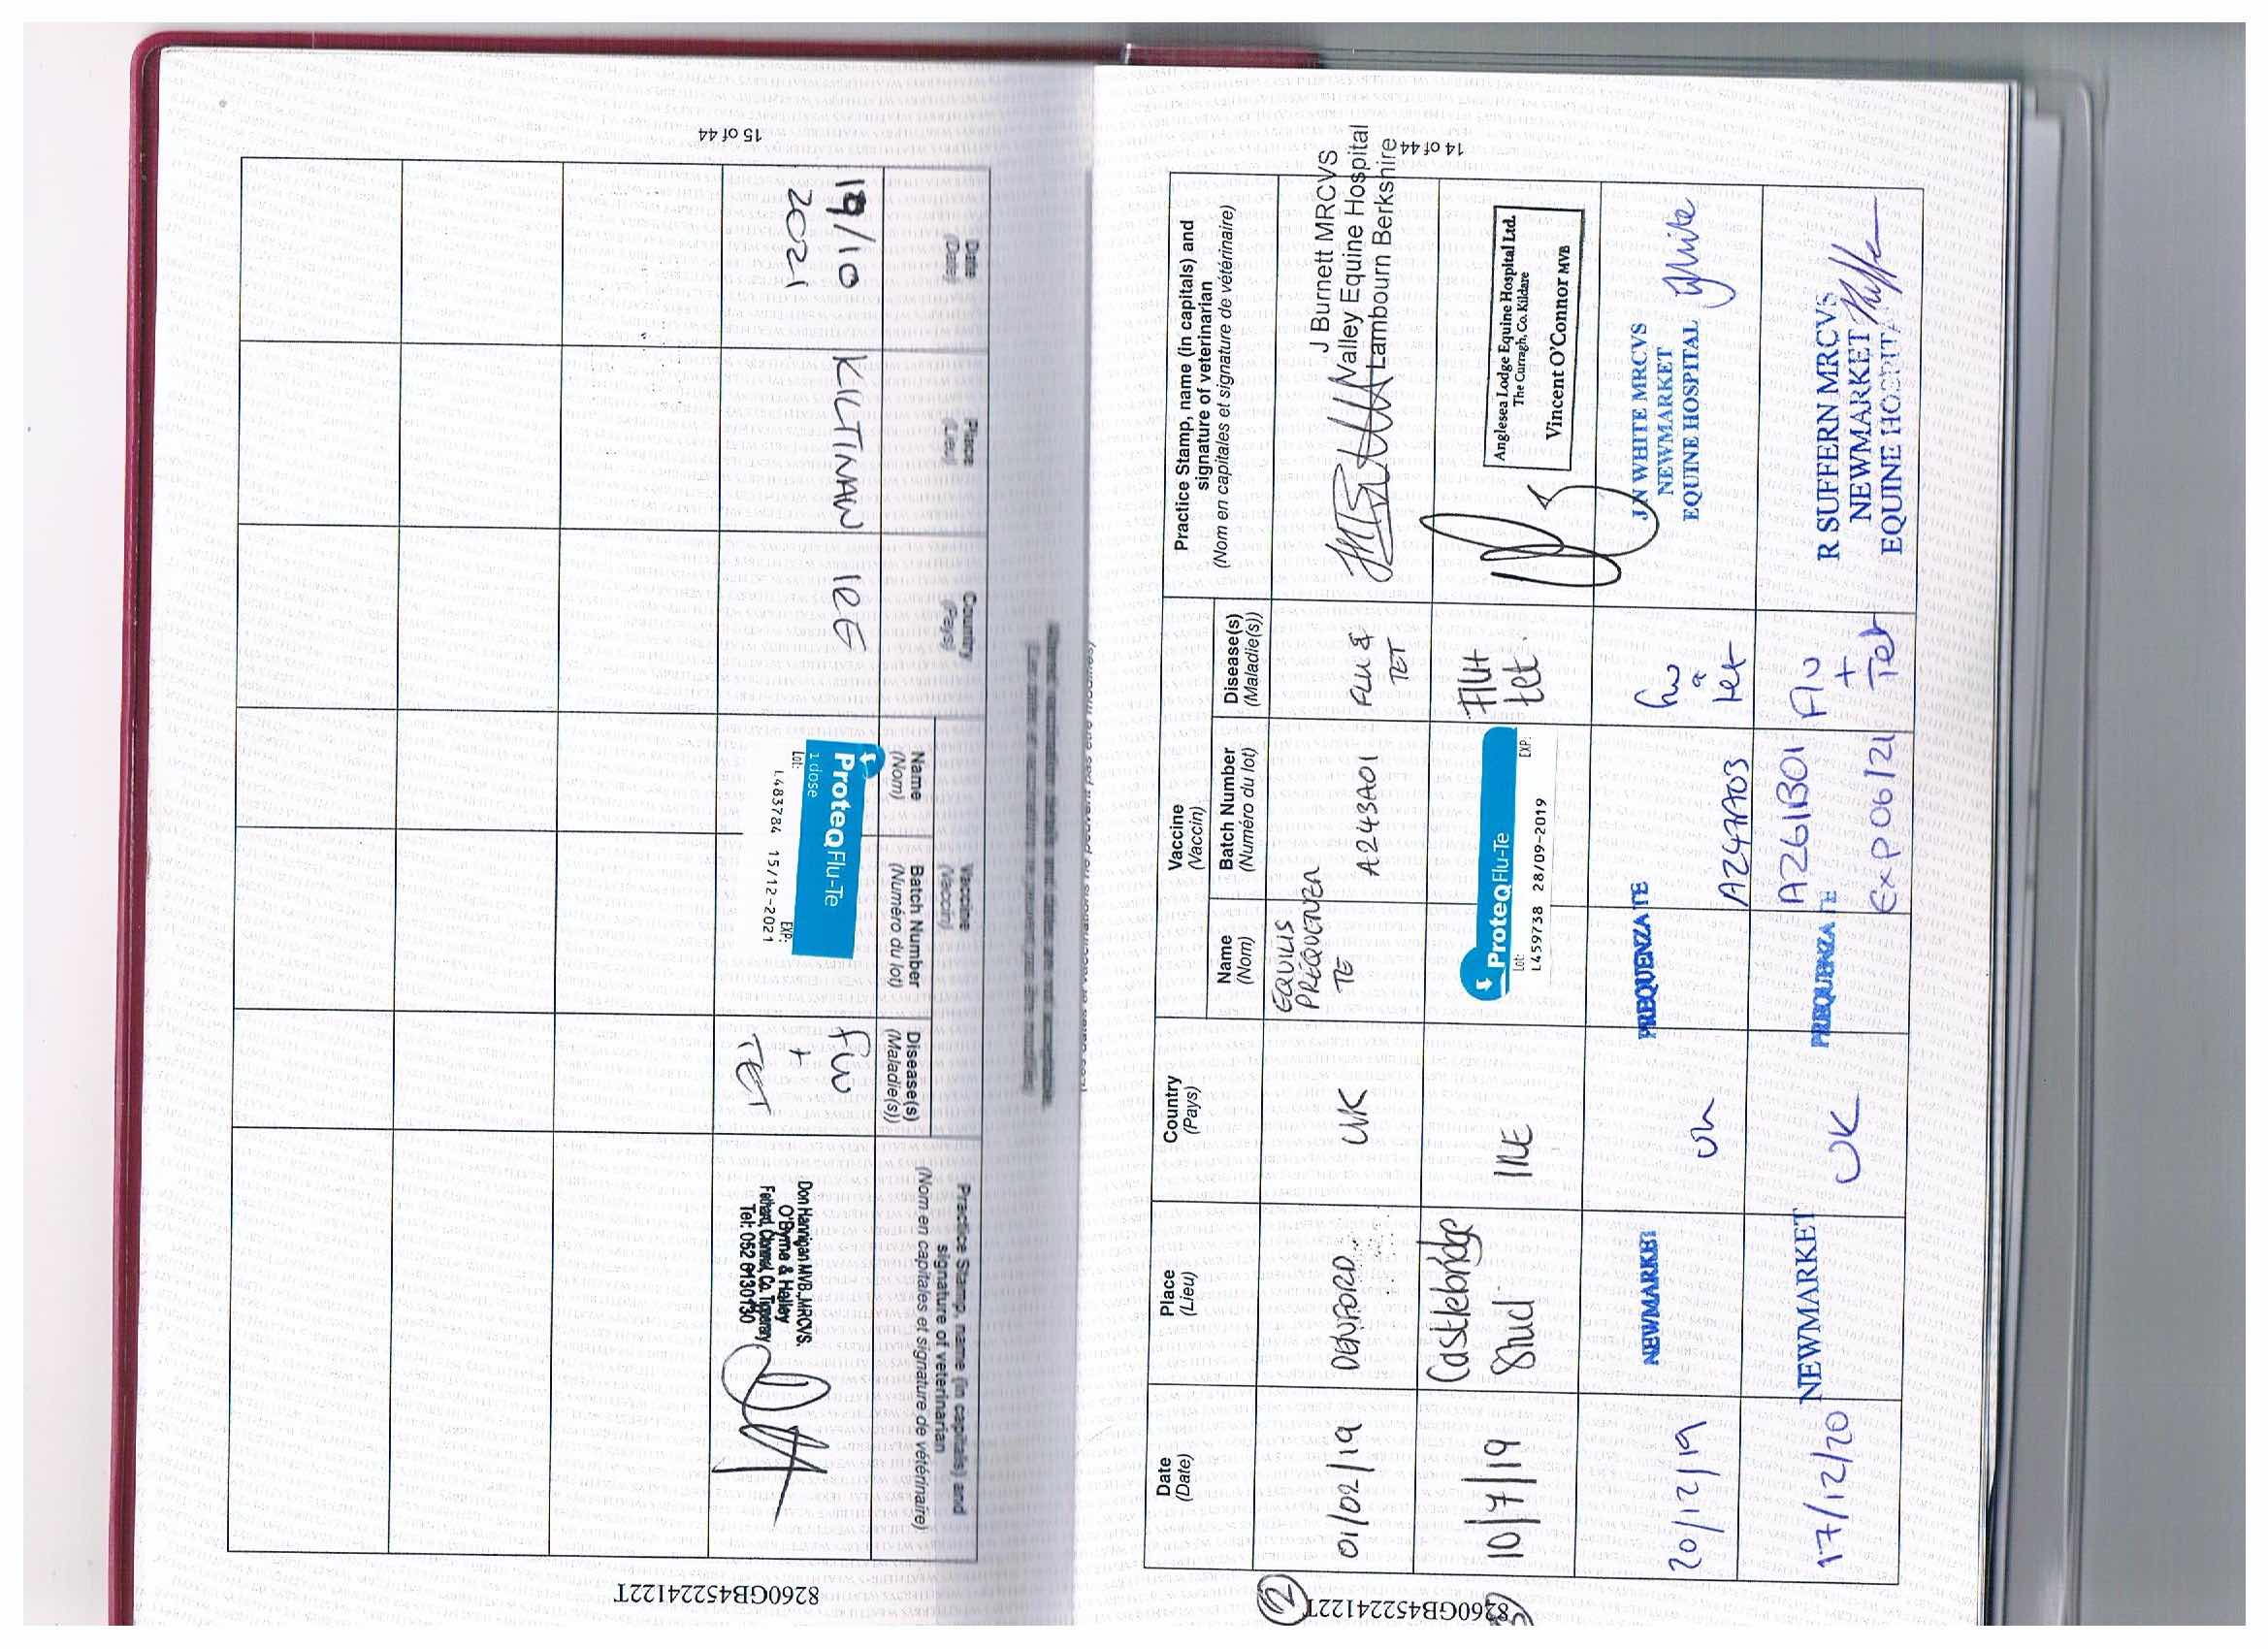 14 of 44
Date
(Date)
Place
(Lieu)
Country
(Pays)
Vaccine
(Vaccin)
Name
(Nom)
Batch Number
(Numéro du lot)
Disease(s)
(Maladie(s))
Practice Stamp, name (in capitals) and
signature of veterinarian
(Nom en capitales et signature de vétérinaire)
01/02/19
DENFORD
UK
EQUILIS
PREQUENZA
TE
A243A01
FLU &
TET
J Burnett MRCVS
Valley Equine Hospital
Lambourn Berkshire
10/7/19
Castlebridge
Stud
IRE
ProteqFlu-Te
Lot:
EXP:
L459738 28/09-2019
Flu+
tet.
Anglesea Lodge Equine Hospital Ltd.
The Curragh, Co. Kildare
Vincent O'Connor MVB
20/12/19
NEWMARKET
UK
PREQUENZA TE
A247A03
flu
&
tet
J N WHITE MRCVS
NEWMARKET
EQUINE HOSPITAL
17/12/20
NEWMARKET
UK
PREQUENZA TE
A261B01
Exp06/21
Flu
+
Tet
R SUFFERN MRCVS
NEWMARKET
EQUINE HOSPITAL
2
8260GB45224122T
15 of 44
Date
(Date)
Place
(Lieu)
Country
(Pays)
Vaccine
(Vaccin)
Name
(Nom)
Batch Number
(Numéro du lot)
Disease(s)
(Maladie(s))
Practice Stamp, name (in capitals) and
signature of veterinarian
(Nom en capitales et signature de vétérinaire)
19/10
2021
KILTINAN
IRE
ProteqFlu-Te
1 dose
Lot:
EXP:
L483784 15/12-2021
Flu
+
TET
Don Hannigan MVB, MRCVS.
O'Byrne & Halley
Fethard, Clonmel, Co. Tipperary
Tel: 052 6130130
8260GB45224122T